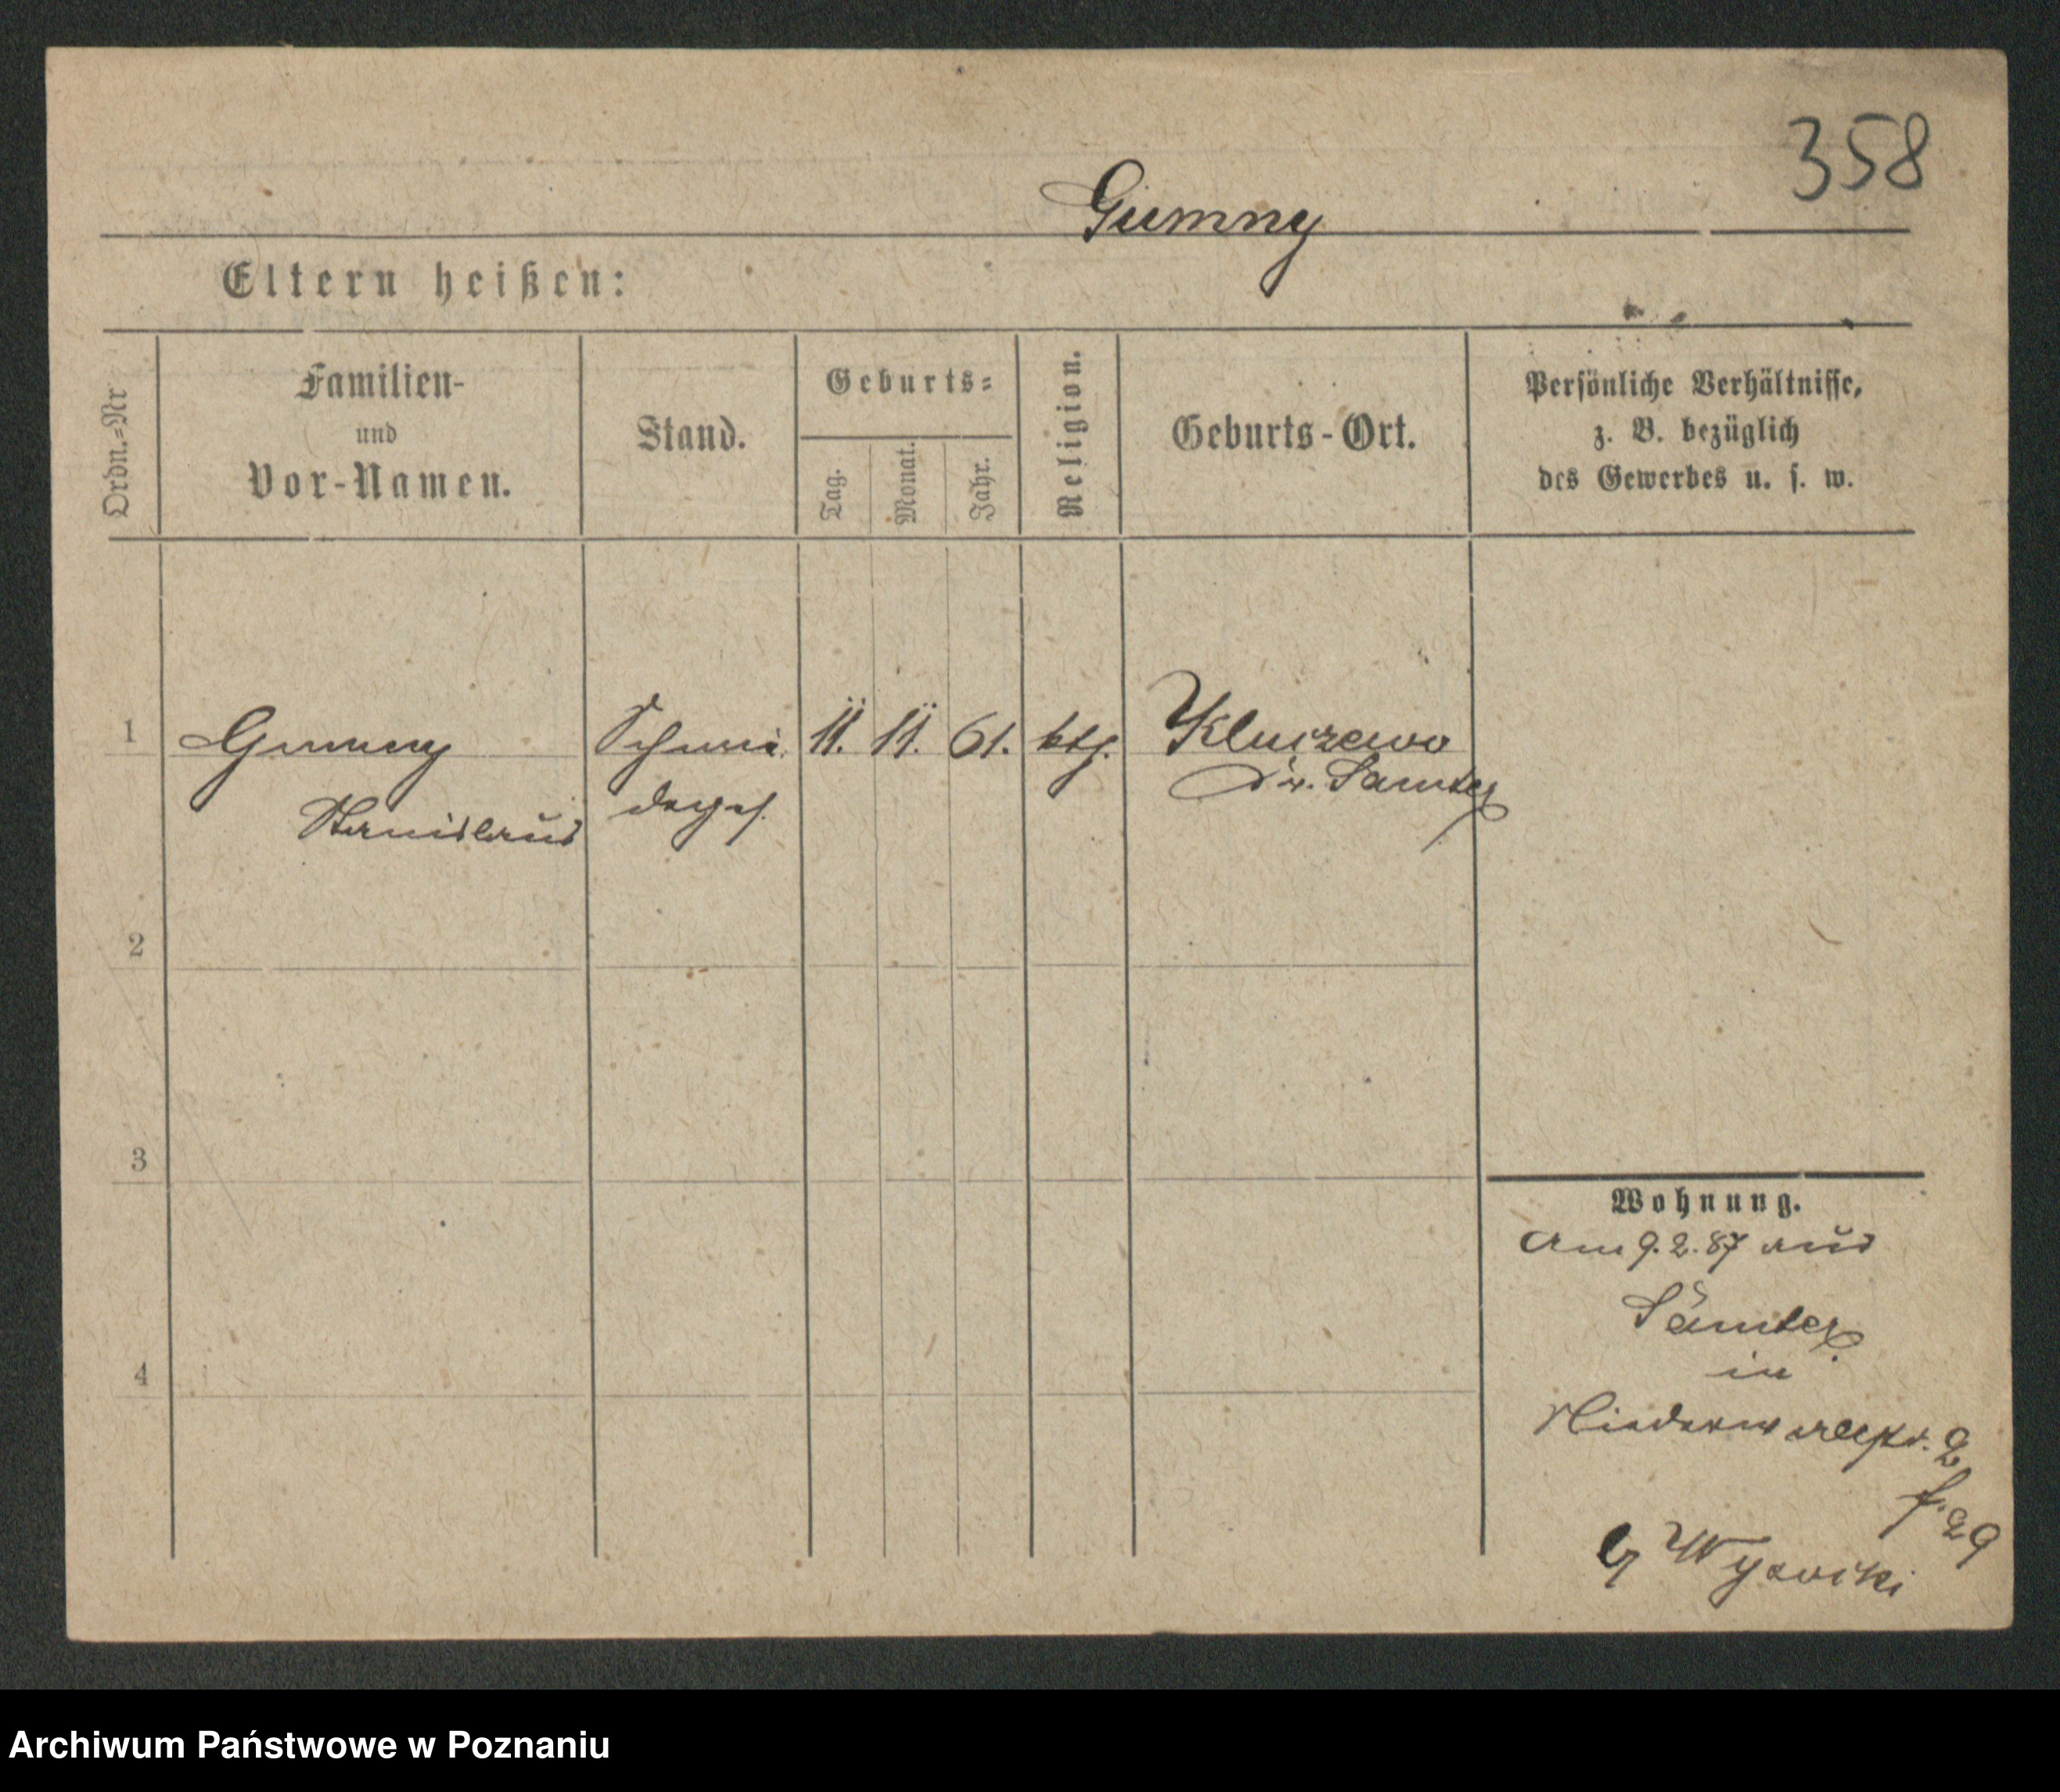 358
Gumny
Eltern heißen:
Ordn.=Nr
Familien-
und
Vor-Namen.
Stand.
Geburts=
Tag.
Monat.
Jahr.
Religion.
Geburts-Ort.
Persönliche Verhältnisse,
z. B. bezüglich
des Gewerbes u. s. w.
1
Gumny
Stanislaus
Schmie
deges.
11.
11.
61.
kth.
Kluczewo
Kr. Samter
2
3
4
Wohnung.
Am 9.2.87 aus
Samter
in
Niederwallstr. 2
f. 29
Wysocki
Archiwum Państwowe w Poznaniu